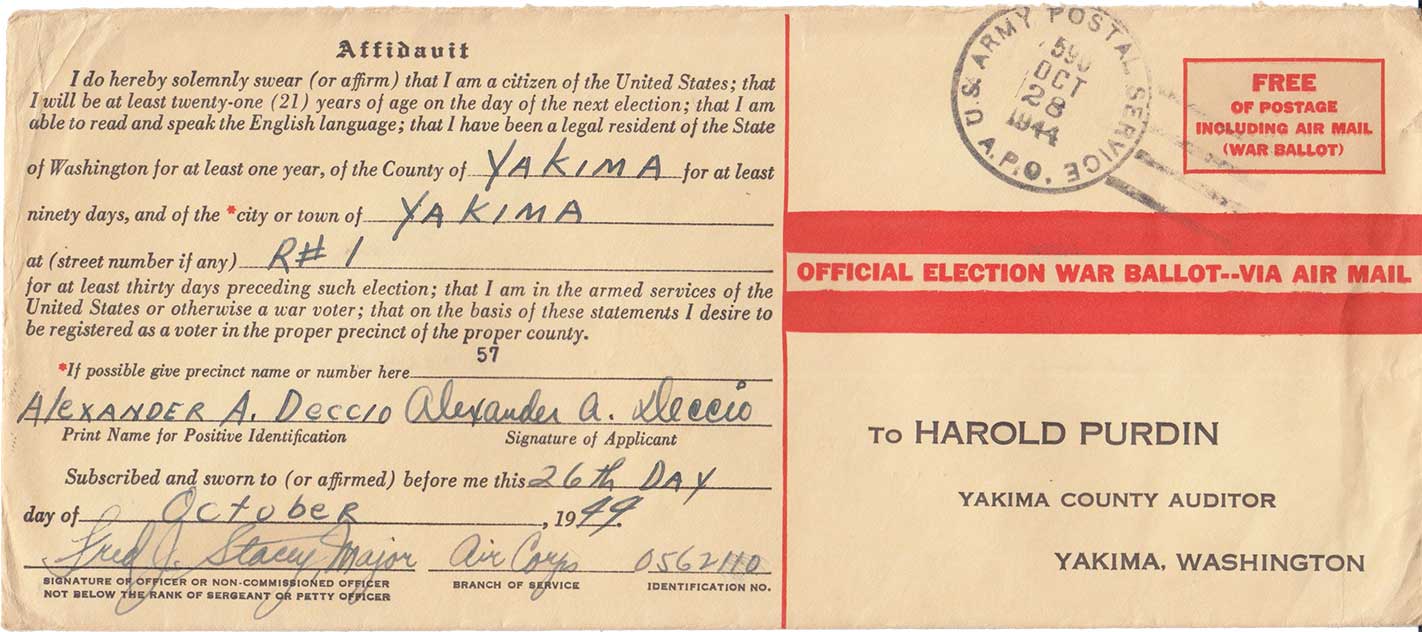 Affidavit
I do hereby solemnly swear (or affirm) that I am a citizen of the United States; that
I will be at least twenty-one (21) years of age on the day of the next election; that I am
able to read and speak the English language; that I have been a legal resident of the State
of Washington for at least one year, of the County of YAKIMA for at least
ninety days, and of the *city or town of YAKIMA
at (street number if any) R# 1
for at least thirty days preceding such election; that I am in the armed services of the
United States or otherwise a war voter; that on the basis of these statements I desire to
be registered as a voter in the proper precinct of the proper county.
57
*If possible give precinct name or number here
AlEXANDER A. DECCIO Alexander A. Deccio
Print Name for Positive Identification Signature of Applicant
Subscribed and sworn to (or affirmed) before me this 26th DAY
day of October, 1944.
Fred J. Stacey, Major Air Corps 0562110
SIGNATURE OF OFFICER OR NON-COMMISSIONED OFFICER
NOT BELOW THE RANK OF SERGEANT OR PETTY OFFICER
BRANCH OF SERVICE IDENTIFICATION NO.
U.S. ARMY POSTAL SERVICE
A.P.O.
590
OCT
28
1944
FREE
OF POSTAGE
INCLUDING AIR MAIL
(WAR BALLOT)
OFFICIAL ELECTION WAR BALLOT--VIA AIR MAIL
TO HAROLD PURDIN
YAKIMA COUNTY AUDITOR
YAKIMA, WASHINGTON